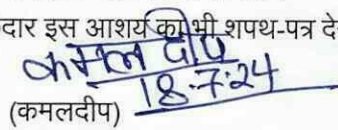 दार इस आशर्य की भी शपथ-पत्र दे
कमल दीप
18.7.24
(कमलदीप)